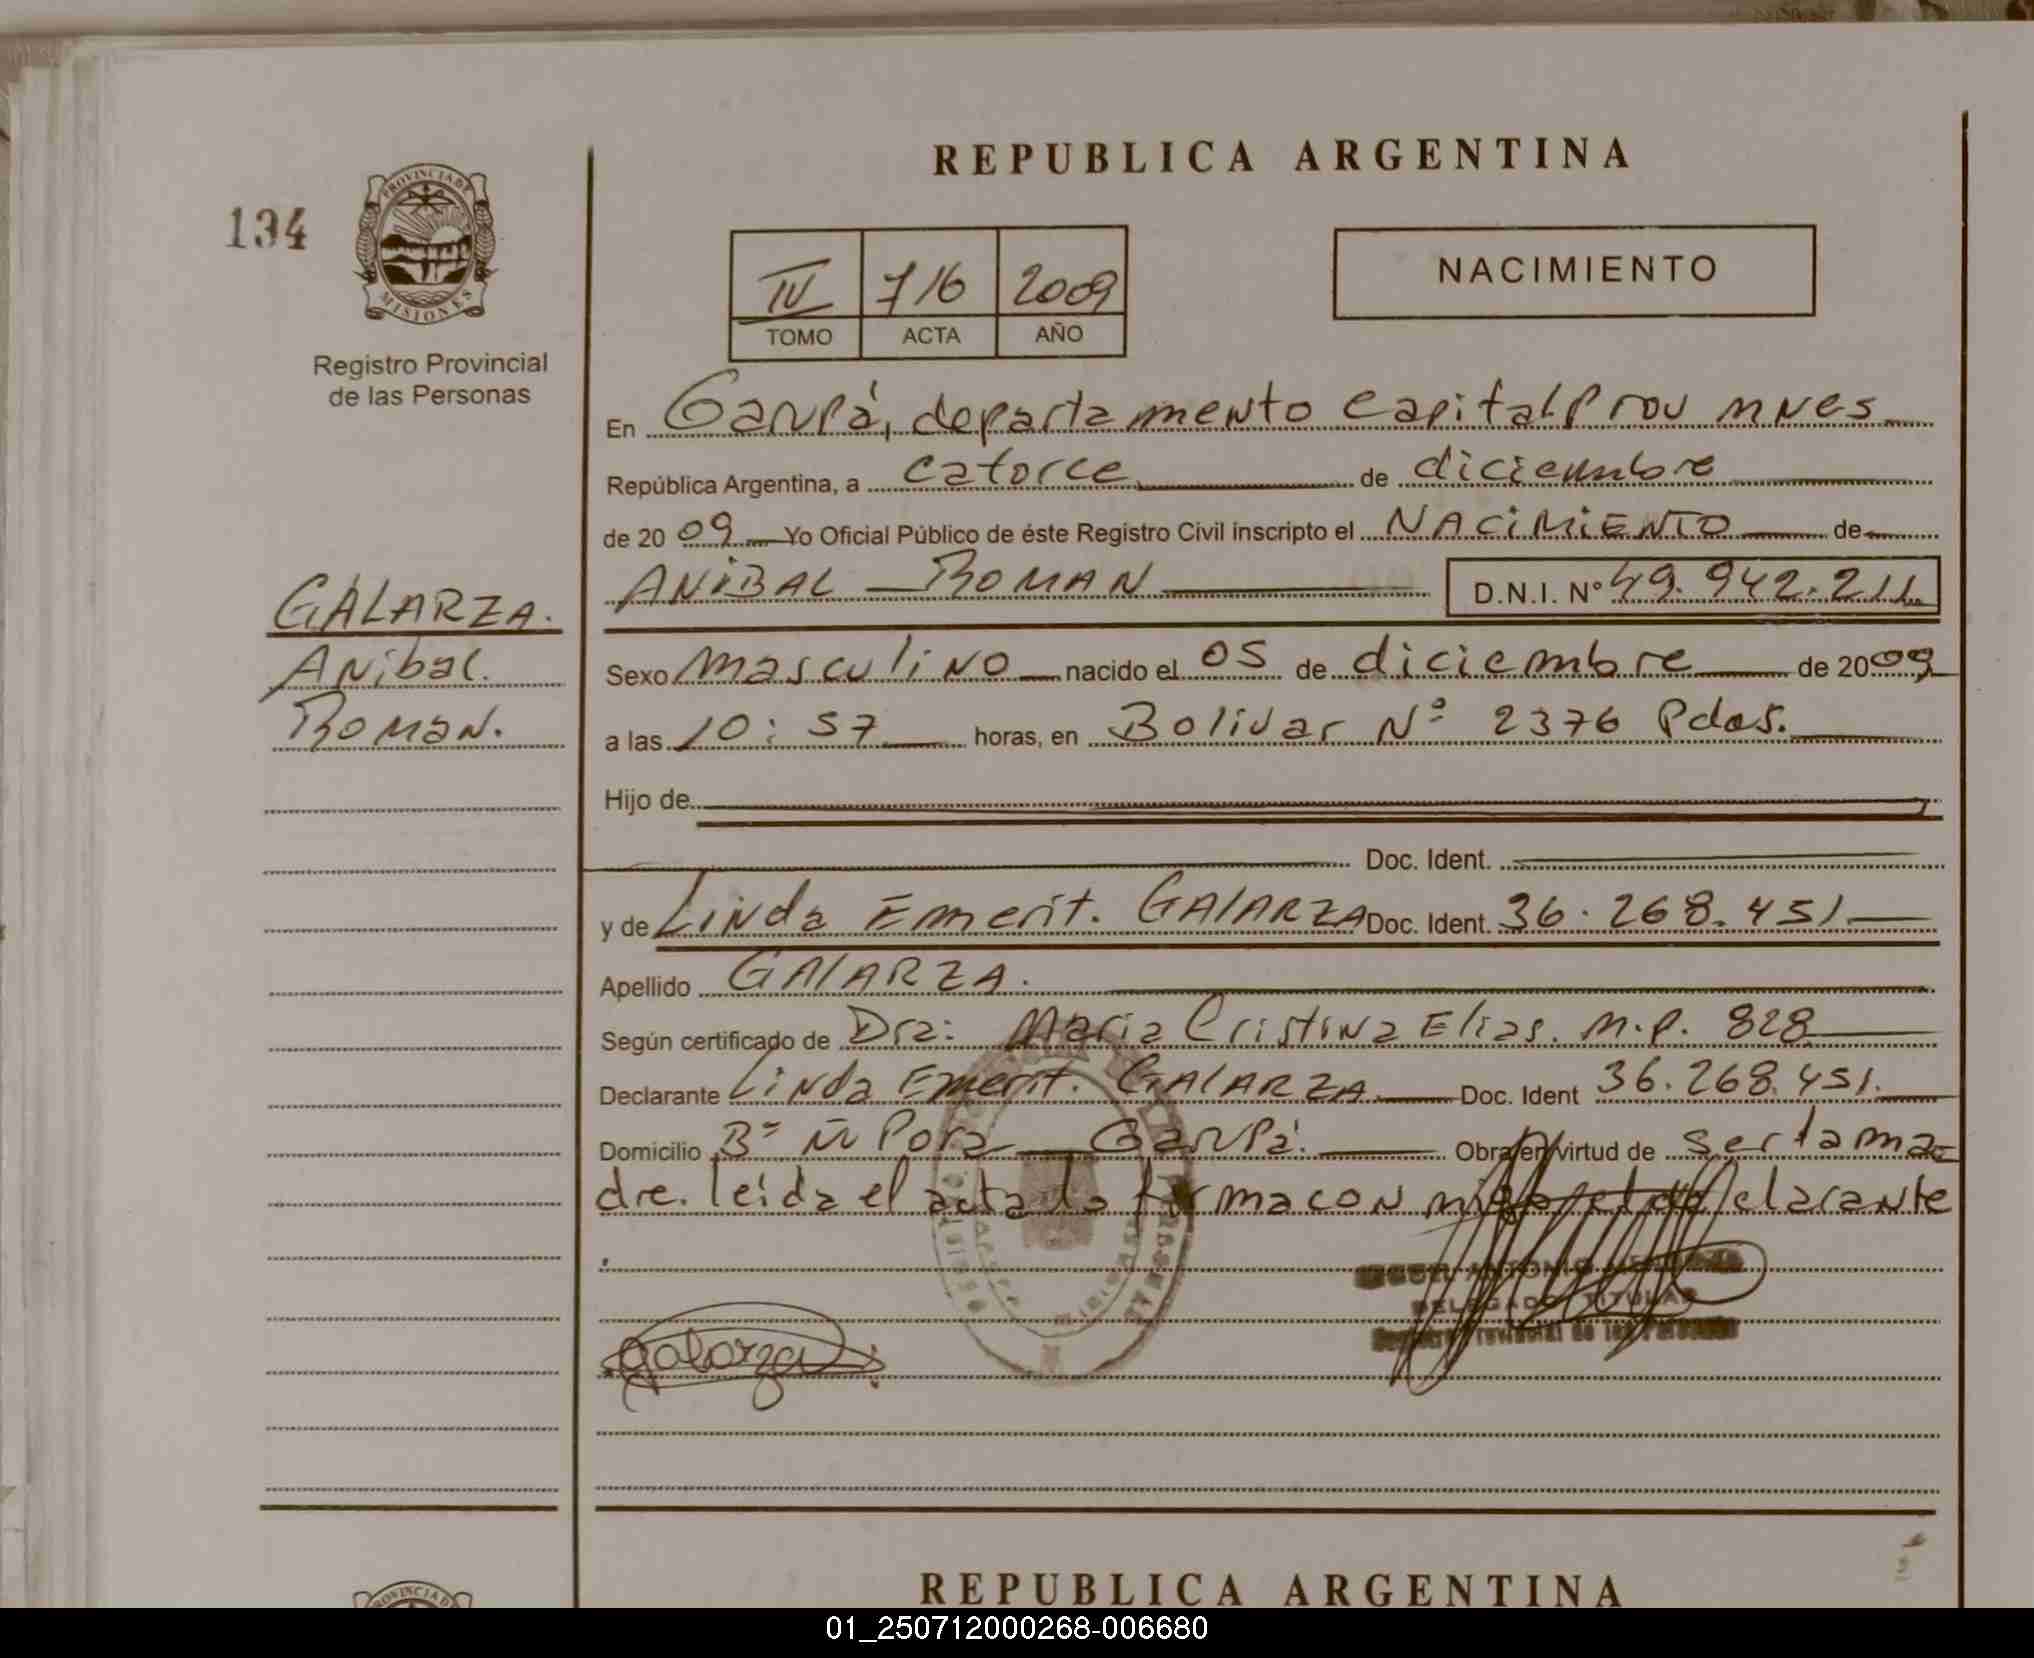 REPUBLICA ARGENTINA
134
PROVINCIA DE
MISIONES
Registro Provincial
de las Personas
IV 716 2009
TOMO ACTA AÑO
NACIMIENTO
En Garupá, departamento Capital Prov mnes
República Argentina, a catorce de diciembre
de 20 09 Yo Oficial Público de éste Registro Civil inscripto el NACIMIENTO de
ANIBAL ROMAN D.N.I. Nº 49.942.211
GALARZA.
Anibal.
Roman.
Sexo masculino nacido el 05 de diciembre de 2009
a las 10:57 horas, en Bolivar Nº 2376 Pdas.
Hijo de
Doc. Ident.
y de Linda Emerit. GALARZA Doc. Ident. 36.268.451
Apellido GALARZA.
Según certificado de Dra: Maria Cristina Elias. m.p. 828
Declarante Linda Emerit. GALARZA Doc. Ident 36.268.451.
Domicilio Bº Ñ Pora Garupá. Obra en virtud de ser la ma
dre. leída el acta la firma con migo el declarante
ANTONIO
DELEGADO TITULAR
Provincial de las Personas
galarza
REPUBLICA ARGENTINA
01_250712000268-006680